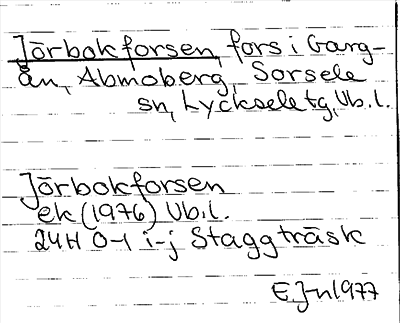 Jörbokforsen, fors i Garg-
ån, Abmoberg, Sorsele
sn, Lycksele tg, Vb. l.
Jörbokforsen
ek (1976) Vb. l.
24H 0-1 i-j Staggträsk
E. J-n 1977